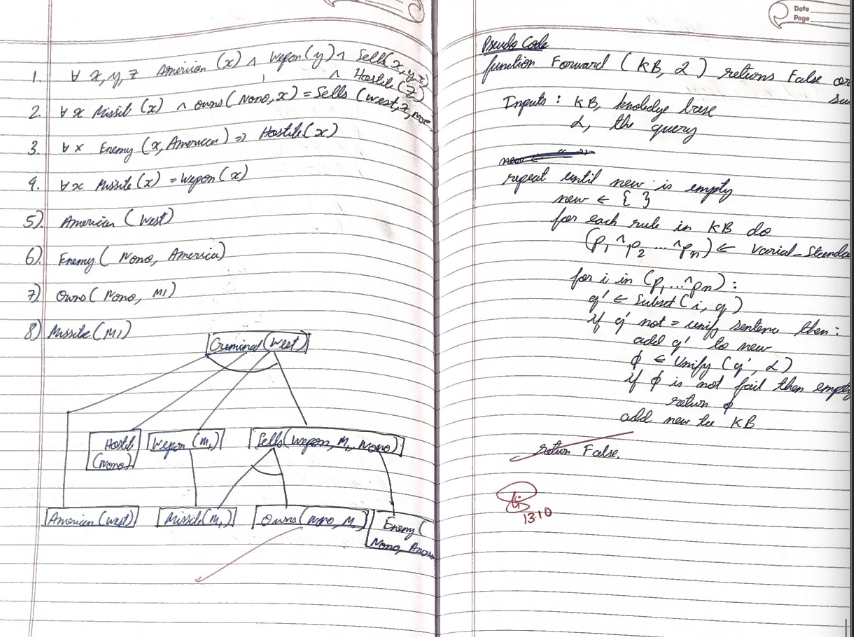 1. ∀ x, y, z American (x) ∧ Wepon (y) ∧ Sells (x, y, z)
∧ Hostile (z)
2. ∀ x Missil (x) ∧ Owns (Nono, x) = Sells (West, x, Nono
3. ∀ x Enemy (x, American) ⇒ Hostile (x)
4. ∀ x Missile (x) = Wepon (x)
5) American (West)
6) Enemy ( Nono, America)
7) Owns ( Nono, M1)
8) Missile (M1)
Criminal (West)
Hostile
(Nono)
Wepon (M1)
Sells (Wepon, M1, Nono)
American (West)
Missile (M1)
Owns (Nono, M1)
Enemy (
Nono,
Date
Page
Pseudo Code
function Forward ( KB, α ) returns False or
Inputs : KB, knowledge base
α, the query
repeat until new is empty
new ← { }
for each rule in KB do
(p1 ^ p2 ... ^ pn) ← Varial_Standa
for i in (p1 ... ^ pn) :
q' ← Subset (i, q)
if q' not = unify sentence then :
add q' to new
ϕ ← Unify (q', α)
if ϕ is not fail then empty
return ϕ
add new to KB
return False.
1310